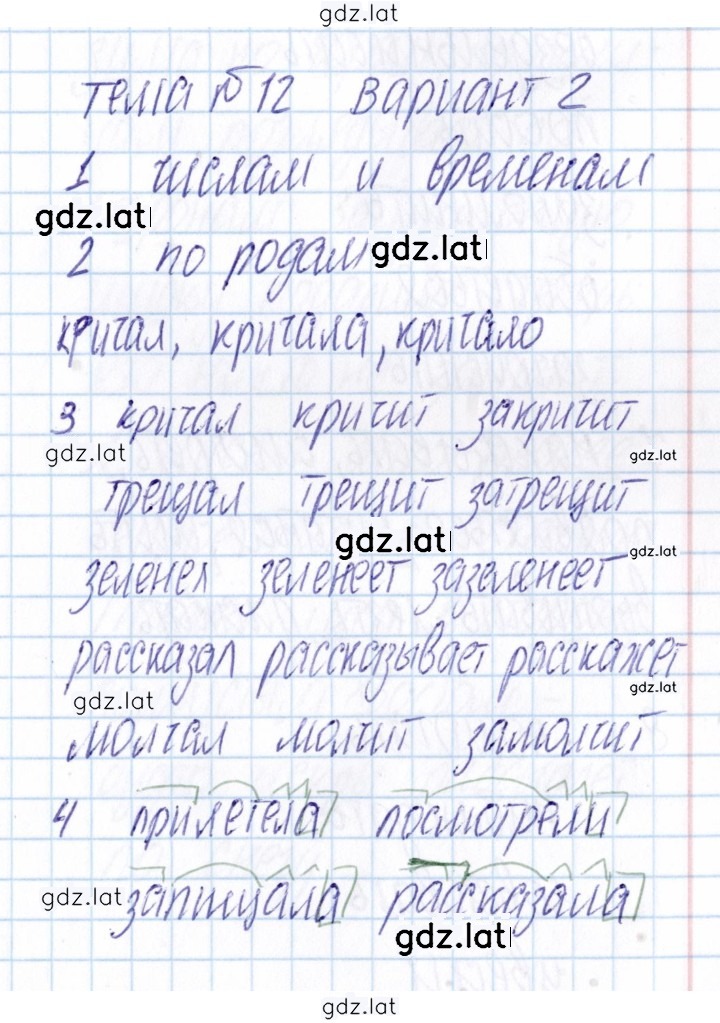 gdz.lat
тема №12 вариант 2
1 числам и временам
gdz.lat
2 по родам gdz.lat
кричал, кричала, кричало
3 кричал кричит закричит
gdz.lat gdz.lat
трещал трещит затрещит
gdz.lat
gdz.lat
зеленел зеленеет зазеленеет
рассказал рассказывает расскажет
gdz.lat gdz.lat
молчал молчит замолчит
4 прилетела посмотрели
gdz.lat запищала рассказала
gdz.lat
gdz.lat